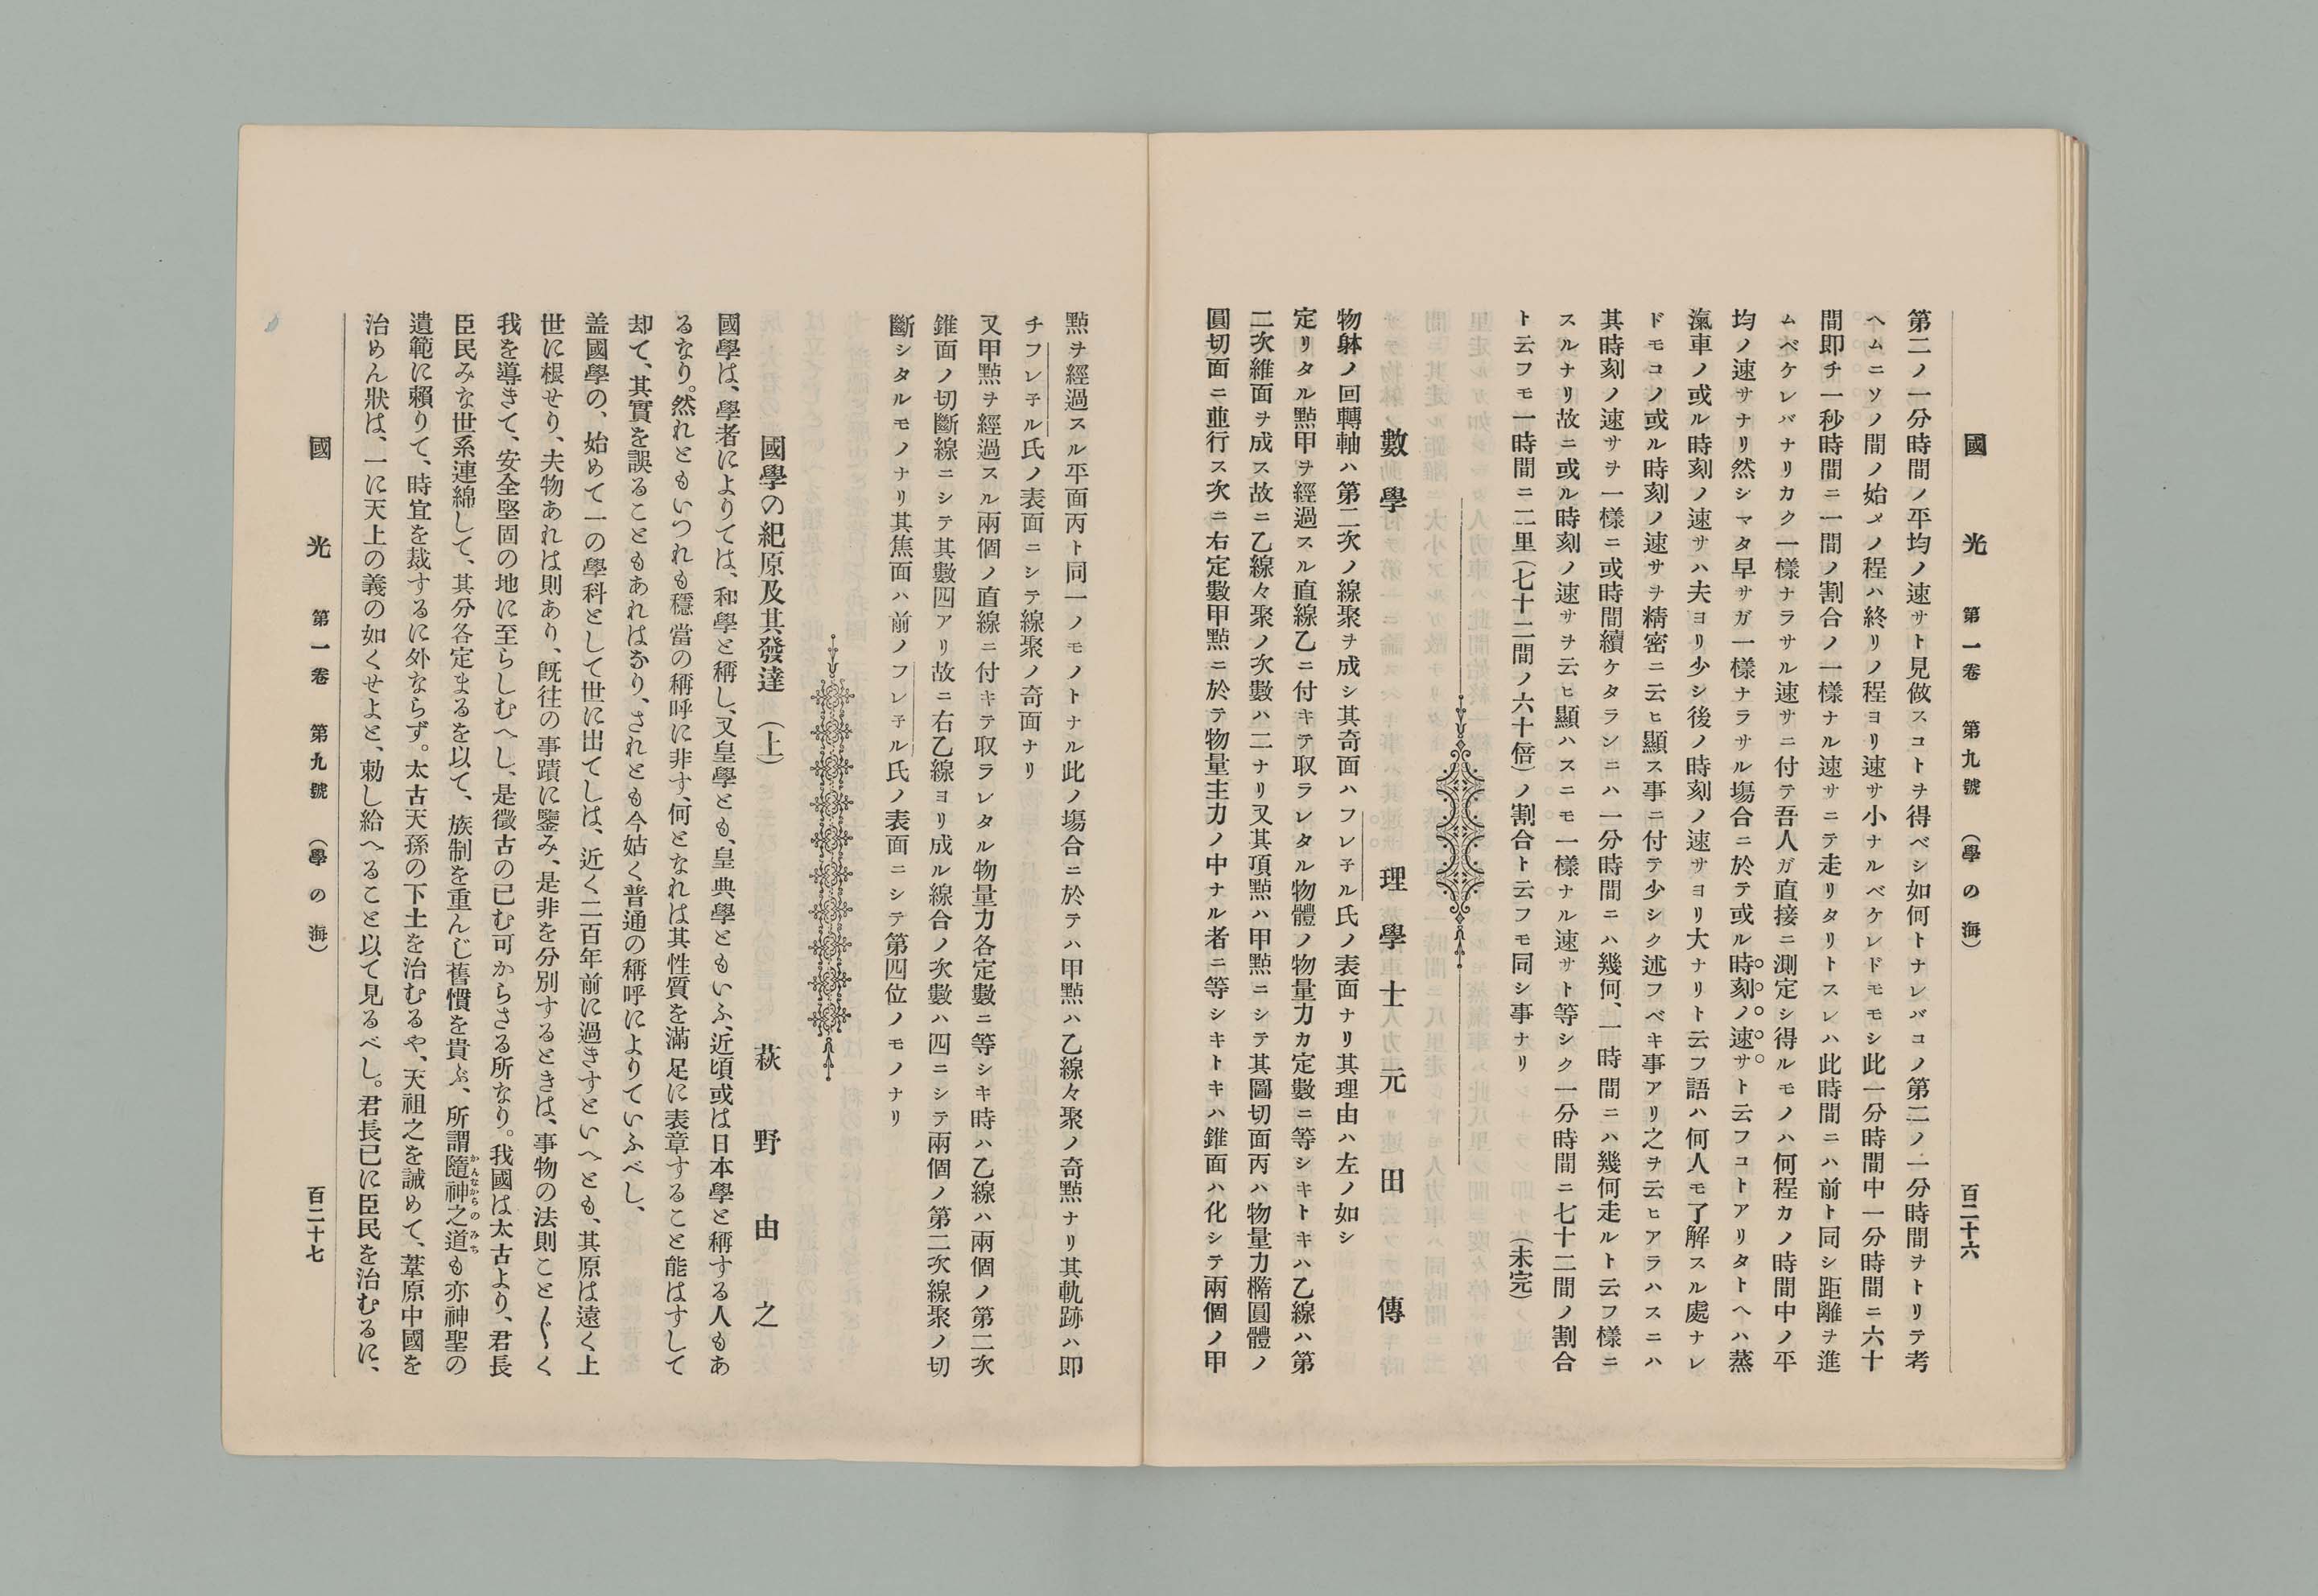 國光 第一卷 第九號 (學の海) 百二十六
第二ノ一分時間ノ平均ノ速サト見做スコトヲ得ベシ如何トナレバコノ第二ノ一分時間ヲトリテ考
ヘムニソノ間ノ始メノ程ハ終リノ程ヨリ速サ小ナルベケレドモモシ此一分時間中一分時間ニ六十
間即チ一秒時間ニ一間ノ割合ノ一樣ナル速サニテ走リタリトスレハ此時間ニハ前ト同シ距離ヲ進
ムベケレバナリカク一樣ナラサル速サニ付テ吾人ガ直接ニ測定シ得ルモノハ何程カノ時間中ノ平
均ノ速サナリ然シマタ早サガ一樣ナラサル塲合ニ於テ或ル時刻ノ速サト云フコトアリタトヘハ蒸
滊車ノ或ル時刻ノ速サハ夫ヨリ少シ後ノ時刻ノ速サヨリ大ナリト云フ語ハ何人モ了解スル處ナレ
ドモコノ或ル時刻ノ速サヲ精密ニ云ヒ顯ス事ニ付テ少シク述フベキ事アリ之ヲ云ヒアラハスニハ
其時刻ノ速サヲ一樣ニ或時間續ケタランニハ一分時間ニハ幾何、一時間ニハ幾何走ルト云フ樣ニ
スルナリ故ニ或ル時刻ノ速サヲ云ヒ顯ハスニモ一樣ナル速サト等シク一分時間ニ七十二間ノ割合
ト云フモ一時間ニ二里(七十二間ノ六十倍)ノ割合ト云フモ同シ事ナリ (未完)
數學 理學士 元田傳
物躰ノ回轉軸ハ第二次ノ線聚ヲ成シ其奇面ハフレ子ル氏ノ表面ナリ其理由ハ左ノ如シ
定リタル㸃甲ヲ經過スル直線乙ニ付キテ取ラレタル物體ノ物量力カ定數ニ等シキトキハ乙線ハ第
二次維面ヲ成ス故ニ乙線々聚ノ次數ハ二ナリ又其項㸃ハ甲㸃ニシテ其圖切面丙ハ物量力橢圓體ノ
圓切面ニ並行ス次ニ右定數甲㸃ニ於テ物量主力ノ中ナル者ニ等シキトキハ錐面ハ化シテ兩個ノ甲
㸃ヲ經過スル平面丙ト同一ノモノトナル此ノ塲合ニ於テハ甲㸃ハ乙線々聚ノ奇㸃ナリ其軌跡ハ即
チフレ子ル氏ノ表面ニシテ線聚ノ奇面ナリ
又甲㸃ヲ經過スル兩個ノ直線ニ付キテ取ラレタル物量力各定數ニ等シキ時ハ乙線ハ兩個ノ第二次
錐面ノ切斷線ニシテ其數四アリ故ニ右乙線ヨリ成ル線合ノ次數ハ四ニシテ兩個ノ第二次線聚ノ切
斷シタルモノナリ其焦面ハ前ノフレ子ル氏ノ表面ニシテ第四位ノモノナリ
國學の紀原及其發達 (上) 萩野由之
國學は、學者によりては、和學と稱し、又皇學とも、皇典學ともいふ、近頃或は日本學と稱する人もあ
るなり。然れともいつれも穩當の稱呼に非す、何となれは其性質を滿足に表章すること能はすして
却て、其實を誤ることもあれはなり、されとも今姑く普通の稱呼によりていふべし、
盖國學の、始めて一の學科として世に出てしは、近く二百年前に過きすといへとも、其原は遠く上
世に根せり、夫物あれは則あり、旣往の事蹟に鑒み、是非を分別するときは、事物の法則こと〴〵く
我を導きて、安全堅固の地に至らしむへし、是徵古の已む可からさる所なり。我國は太古より、君長
臣民みな世系連綿して、其分各定まるを以て、族制を重んじ舊慣を貴ぶ、所謂隨神之道も亦神聖の
遺範に賴りて、時宜を裁するに外ならず。太古天孫の下土を治むるや、天祖之を誡めて、葦原中國を
治めん狀は、一に天上の義の如くせよと、勅し給へること以て見るべし。君長已に臣民を治むるに、
國光 第一卷 第九號 (學の海) 百二十七